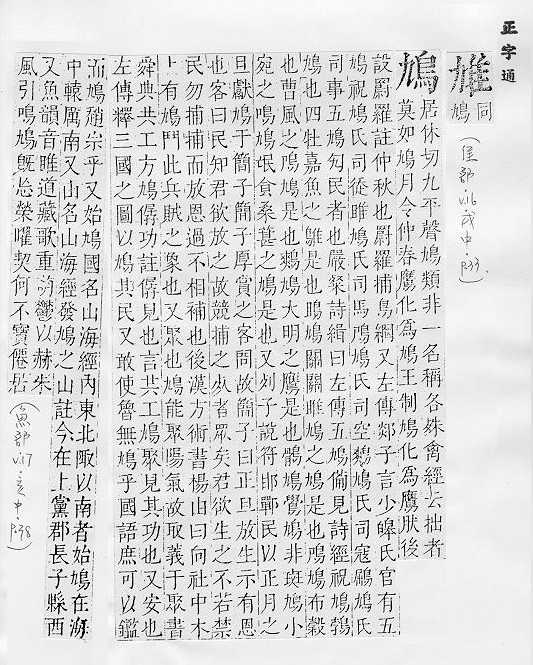 正字通
同鳩
(隹部 戌中 P.33)
鳩居休切九平聲鳩類非一名稱各殊禽經云拙者
莫如鳩月令仲春鷹化為鳩王制鳩化為鷹肰後
設罻羅註仲秋也罻羅捕鳥網又左傳郯子言少皥氏官有五
鳩祝鳩氏司徒雎鳩氏司馬鳲鳩氏司空鷞鳩氏司寇鶻鳩氏
司事五鳩匆民者也嚴粲詩緝曰左傳五鳩備見詩經祝鳩鵓
鳩也四牡嘉魚之鵻是也鴡鳩關關雎鳩之鳩是也鳲鳩布穀
也曹風之鳲鳩是也鷞鳩大明之鷹是也鶻鳩鷽鳩非斑鳩小
宛之鳴鳩氓食桑葚之鳩是也又列子說符邯鄲民以正月之
旦獻鳩于簡子簡子厚賞之客問故簡子曰正旦放生示有恩
也客曰民知君欲放之故競捕之死者眾矣君欲生之不若禁
民勿捕捕而放恩過不相補也後漢方術書楊山曰向社中木
上有鳩鬥此兵賊之象也又聚也鳩能聚陽氣故取義于聚書
舜典共工方鳩僝功註僝見也言共工鳩聚見其功也又安也
左傳釋三國之圖以鳩其民又敢使魯無鳩乎國語庶可以鑑
而鳩趙宗乎又始鳩國名山海經內東北陬以南者始鳩在海
中轅厲南又山名山海經發鳩之山註今在上黨郡長子縣西
又魚韻音雎道藏歌重前鬱以赫朱
風引鳴鳩旣榮曜契何不寶僊居
(魚部 亥中 P.38)